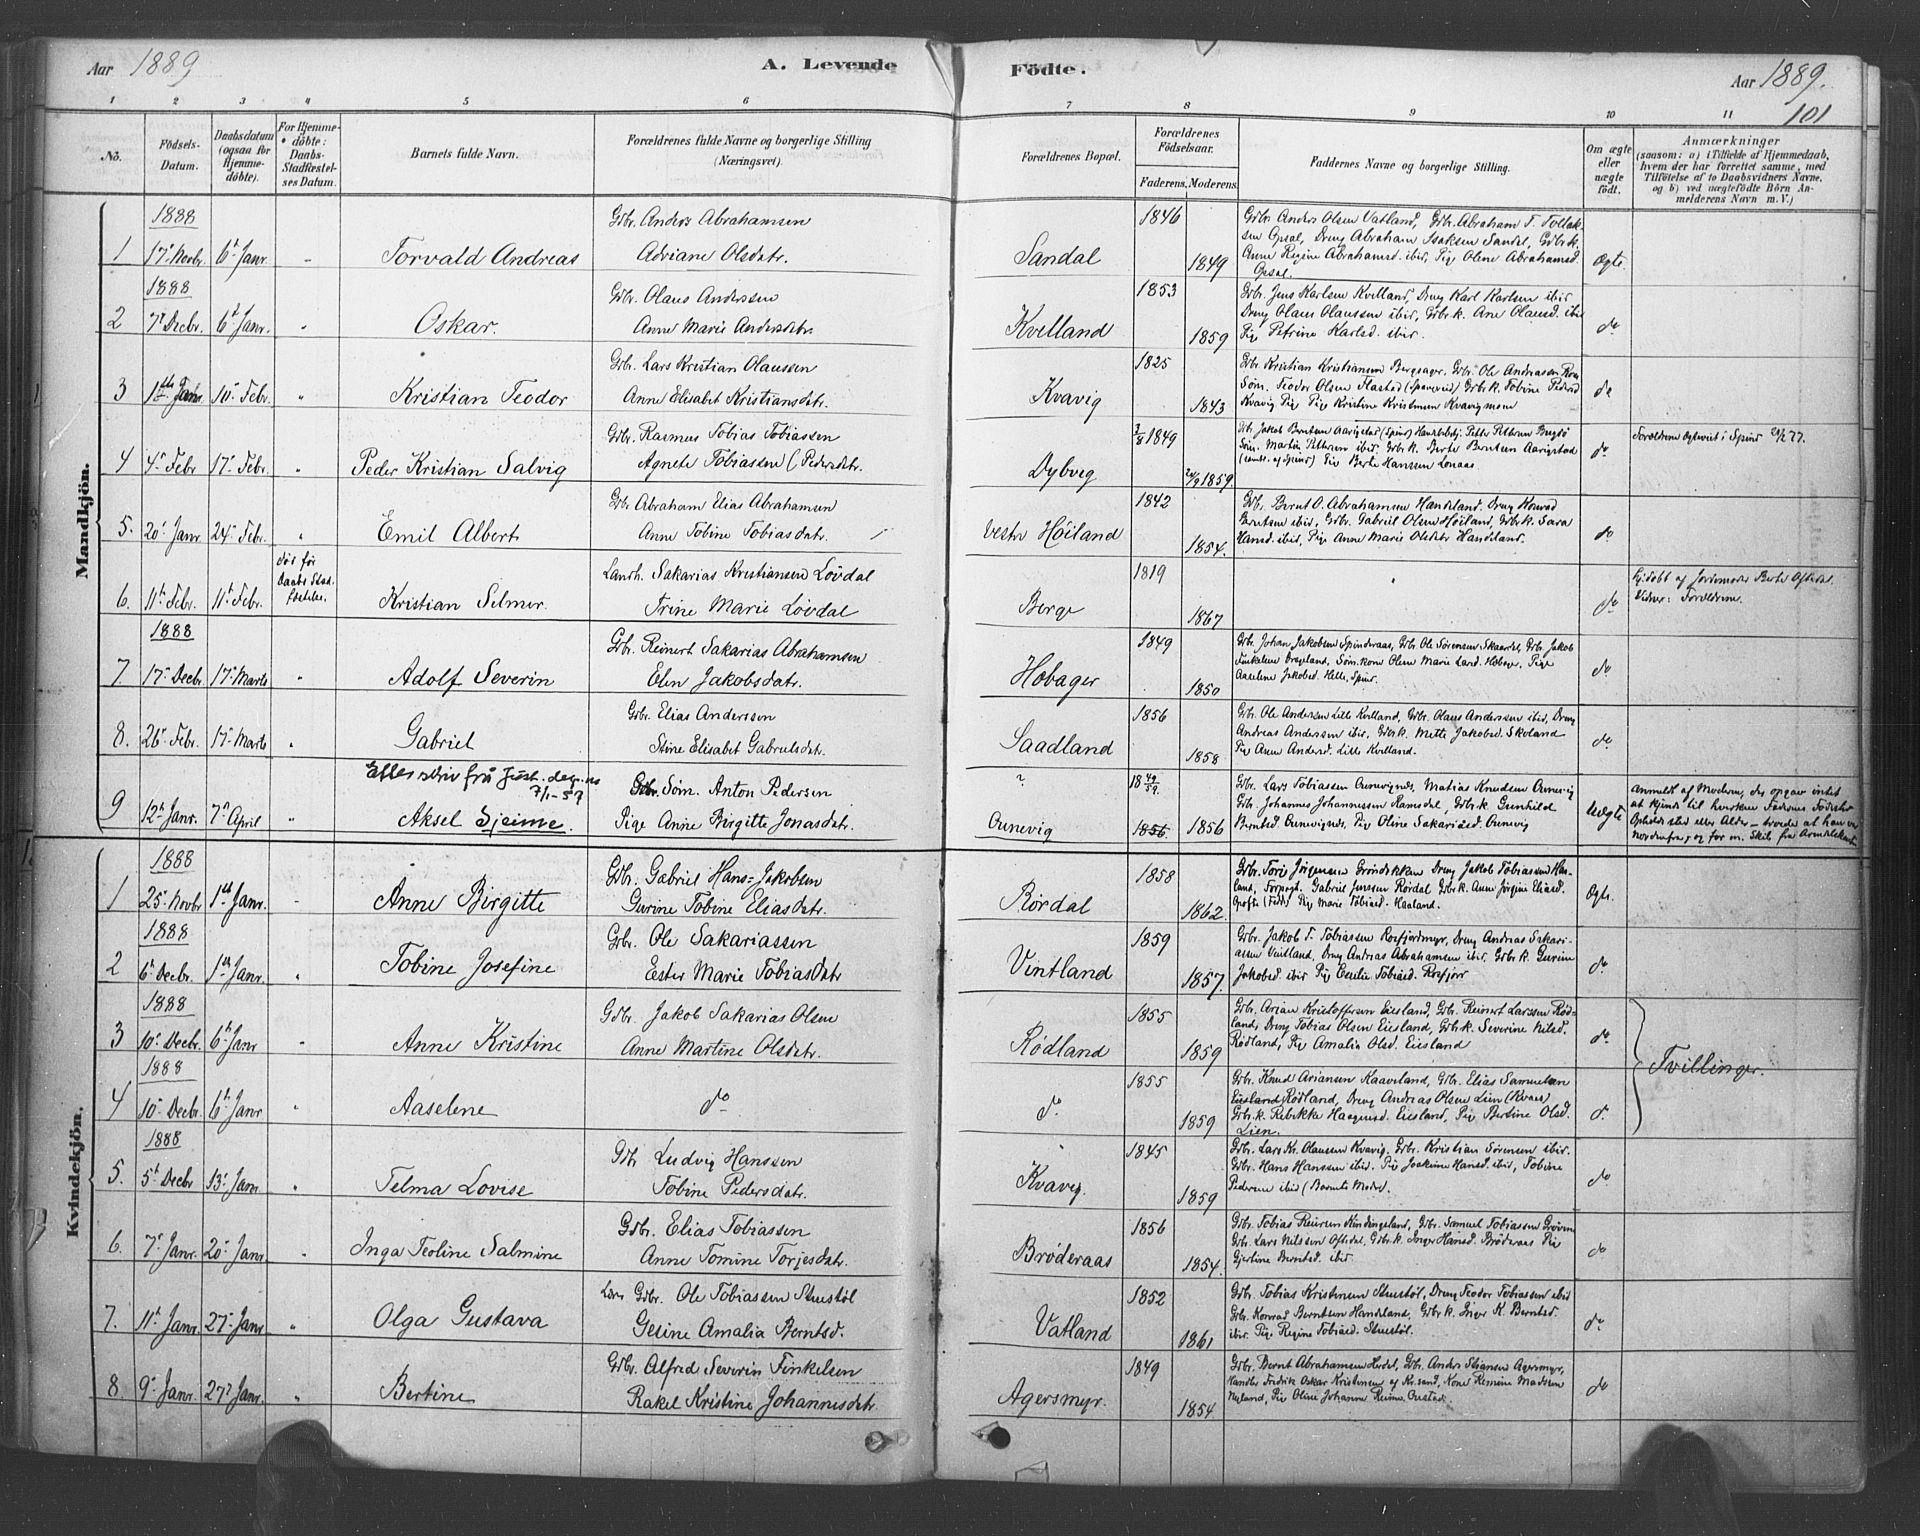 Aar 1889
A. Levende
Födte.
Aar 1889.
101
1 2 3 4 5 6 7 8 9 10 11
No.
Födsels-
Datum.
Daabsdatum
(ogsaa for
Hjemme-
döbte).
For Hjemme-
döbte:
Daabs-
Stadfæstel-
ses Datum.
Barnets fulde Navn.
Forældrenes fulde Navne og borgerlige Stilling
(Næringsvei).
Forældrenes Bopæl.
Forældrenes
Födselsaar.
Faderens. Moderens.
Faddernes Navne og borgerlige Stilling.
Om ægte
eller
uægte
födt.
Anmærkninger
(saasom: a) i Tilfælde af Hjemmedaab,
hvem der har forrettet samme, med
Tilföielse af to Daabsvidners Navne,
og b) ved uægtefödte Börn An-
melderens Navn m. V.)
Mandkjön.
1888
1 17 Novbr. 6 Janr. " Torvald Andreas
Gdbr. Anders Abrahamsen
Adriane Olsdatr.
Sandal 1846 1849
Gdbr. Anders Olsen Vatland, Gdbr. Abraham T. Tollak-
sen Opsal, Dreng Abraham Isaksen Sandal, Gdbr.k.
Anne Regine Abrahamsd. ibid, Pige Oline Abrahamsd.
Opsal.
Ægte.
1888
2 7 Decbr. 6 Janr. " Oskar.
Gdbr. Olaus Anderssen
Anne Marie Andersdatr.
Kvelland 1853 1859
Gdbr. Jens Karlsen Kvelland, Dreng Karl Karlsen ibid,
Dreng Olaus Olaussen ibid, Gdbr.k. Ane Olausd. ibid
Pige Petrine Karlsd. ibid.
do
3 1 Janr. 10 Febr. " Kristian Teodor
Gdbr. Lars Kristian Olaussen
Anne Elisabet Kristiansdatr.
Kvavig 1825 1843
Gdbr. Kristian Kristiansen Bergsager, Gdbr. Ole Andreassen
Søm. Teodor Olsen Flastad (Spareveid) Gdbr.k. Tobine Pedersd
Kvavig Pige Kristine Kristensen Kvavigmoen
do
4 4 Febr 17 Febr. " Peder Kristian Salvig
Gdbr. Rasmus Tobias Tobiassen
Agnete Tobiassen (Pedersdatr.
Dybvig 1849 1859.
Gdbr. Jakob Berntsen Aarigstad (Spind)
Søm. Martin Petersen ibid. Gdbr.k. Berte Berntsen Aarigstad
Pige Berte Hanssen Lonaas
do
Forældrene ægteviet i Spind 77.
5. 20 Janr 24 Febr. " Emil Albert
Gdbr. Abraham Elias Abrahamsen
Anne Tobine Tobiasdatr.
Vestr Høiland 1842 1854.
Gdbr. Bernt O. Abrahamsen Handeland. Dreng Konrad
Berntsen ibid, Gdbr. Gabriel Olsen Høiland, Gdbr.k. Sara
Hansd. ibid, Pige Anne Marie Olsdatr Handeland.
do
6. 11 Febr. 11 Febr.
død før
Daabs Stad
fæstelse.
Kristian Selmer.
Landh. Sakarias Kristiansen Løvdal
Trine Marie Løvdal
Berge 1819 1867
"
do
Hj.døbt af Jordemoder Berte Aftedal.
Vidner: Forældrene.
1888
7 17 Decbr 17 Marts " Adolf Severin
Gdbr. Reinert Sakarias Abrahamsen
Elen Jakobsdatr.
Høbager 1849 1850
Gdbr. Johan Jakobsen Spinderaas, Gdbr. Ole Sørensen Skaardal, Gdbr. Jakob
Finkelsen Drageland, Søm.kone Olene Marie Land. Høbager, Pige
Aaselene Jakobsd. Helle, Spind.
do
8. 26 Febr. 17 Marts " Gabriel
Gdbr. Elias Anderssen
Stine Elisabet Gabrielsdatr.
Saadland 1856 1858
Gdbr. Ole Andersen Lille Kvelland, Gdbr. Olaus Anderssen ibid, Dreng
Andreas Anderssen ibid, Gdbr.k. Mette Jakobsd. Skoland
Pige Anne Andersd. Lille Kvelland.
do
Efterskriv fra Just. dep. ns
7/1-57
9 12 Janr. 7 April " Aksel Sjeime.
Gdbr. Søm. Anton Pedersen
Pige Anne Birgitte Jonasdatr.
?
Ounevig 18 49/59. 1856 1856
Gdbr. Lars Tobiassen Ounevignes, Matias Knudsen Ounevig
Gdbr. Johannes Johannessen Ramsdal, Gdbr.k. Gunhilde
Berntsd Ounevignes, Pige Oline Sakariasd. Ounevig
Uægte
Anmeldt af Moderen, der opgav intet
at kjende til hverken Faderens Fødested
Opholdssted eller Alder – troede at han var
nordenfra, og for m. Skib fra Arendalskant
Kvindekjön.
1888
1 25 Novbr 1 Janr. - Anne Birgitte
Gdbr. Gabriel Hans-Jakobsen
Gurine Tobine Eliasdatr.
Rørdal 1858 1862.
Gdbr. Toris Jørgensen Grøndokken Dreng Jakob Tobiassen Haa-
land, Forpagt. Gabriel Jenssen Rørdal Gdbr.k. Anne Jørgine Eliasd.
(Fedd) Pige Marie Tobiasd. Haaland.
Ægte.
1888
2 6 Decbr. 1 Janr. " Tobine Josefine
Gdbr. Ole Sakariassen
Ester Marie Tobiasdatr
Vintland 1859 1857.
Gdbr. Jakob T. Tobiassen Rosfjordmyr, Dreng Andreas Sakari-
assen Vintland, Dreng Andreas Abrahamsen ibid, Gdbr.k. Gurine
Jakobsd ibid Pige Cecilie Tobiasd. Rosfjord
do
1888
3 10 Decbr. 6 Janr " Anne Kristine
Gdbr. Jakob Sakarias Olsen
Anne Martine Olsdatr.
Rødland 1855 1859
Gdbr. Arian Kristoffersen Eiesland, Gdbr. Reinert Larssen Rød-
land, Dreng Tobias Olsen Eiesland, Gdbr.k. Severine Nilsd.
Rødland, Pige Amalia Olsd. Eiesland
do
Tvillinger.
1888
4 10 Decbr. 6 Janr " Aaselene
do
do. 1855 1859
Gdbr. Knud Ariansen Kaaveland, Gdbr. Elias Samuelsen
Eiesland Rødland, Dreng Andreas Olsen Lien (Kvaas)
Gdbr.k. Rebekka Haagensd. Eiesland, Pige Bertine Olsd.
Lien.
do
1888
5. 5 Decbr 13 Janr. " Telma Lovise
Gdbr Ludvig Hanssen
Tobine Pedersdatr.
Kvavig. 1845 1859
Gdbr. Lars Kr. Olaussen Kvavig, Gdbr. Kristian Sørensen ibid.
Gdbr. Hans Hanssen ibid. Pige Joakime Hansd. ibid, Tobine
Pedersen ibid (Barnets Moder).
do
6. 7 Janr. 20 Janr. " Inga Teoline Salmine
Gdbr. Elias Tobiassen
Anne Tomine Torjesdatr.
Brøderaas 1856 1854.
Gdbr. Tobias Reiersen Kindingeland, Gdbr. Samuel Tobiassen Grøven
Gdbr. Lars Nilssen Aftedal, Gdbr.k. Inger Hansd. Brøderaas Pige
Gjertine Berntsd. ibid.
do
7. 11 Janr. 27 Janr " Olga Gustava
Lærer Gdbr. Ole Tobiassen Stuestøl
Geline Amalia Berntsd.
Vatland 1852 1861
Gdbr. Tobias Kristensen Stuestøl, Dreng Teodor Tobiassen ibid
Gdbr. Konrad Berntsen Handeland, Gdbr.k. Inger K. Berntsd.
ibid. Pige Regine Tobiasd. Stuestøl.
do
8. 9 Janr. 27 Janr. " Bertine
Gdbr. Alfred Severin Finkelsen
Rakel Kristine Johannesdatr.
Agersmyr. 1849 1854.
Gdbr. Bernt Abrahamsen Herdal, Gdbr. Anders Stiansen Agersmyr,
Handler Fredrik Oskar Kristensen af Kr.sand, Kone Remine Madssen
Nyland, Pige Oline Johanne Reime Oustad.
do